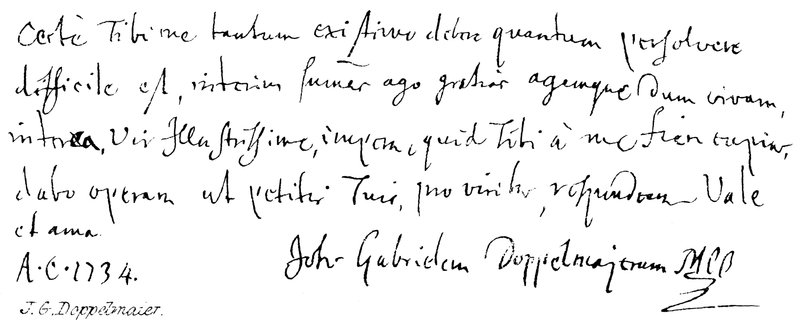 Certè Tibi me tantum existimo debere quantum persolvere
difficile est, interim sum̄as ago gratias agamque dum vivam,
interea, Vir Illustrissime, impera, quid Tibi à me fieri cupias,
dabo operam ut petitis Tuis, pro viribus, respondeam Vale
et ama
A·C·1734. Joh. Gabrielem Doppelmajerum
J. G. Doppelmaier.